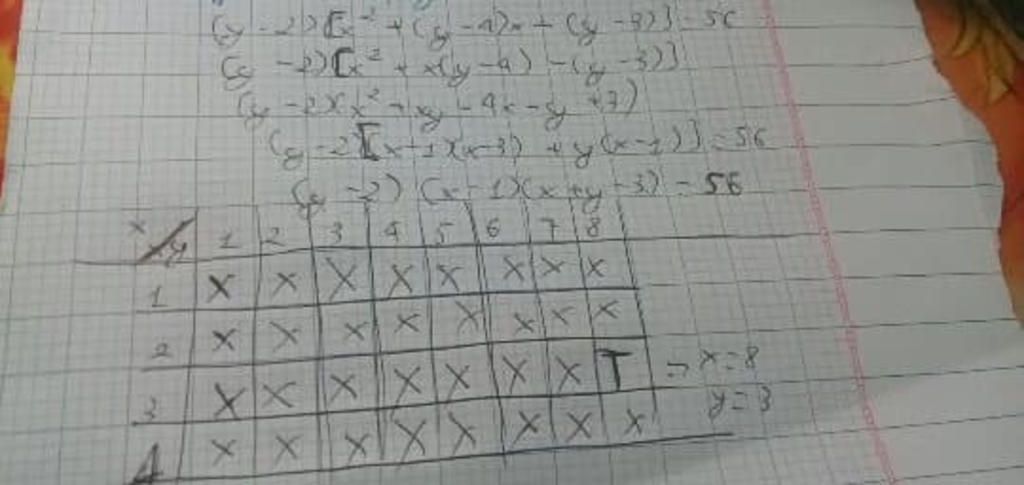 (y - 2)[x² + (y - 4)x + (y - 3)] = 56
(y - 2)[x² + x(y - 4) - (y - 3)]
(y - 2)(x² + xy - 4x - y + 7)
(y - 2)[(x - 1)(x - 3) + y(x - 1)] = 56
(y - 2) (x - 1)(x + y - 3) = 56
x y 1 2 3 4 5 6 7 8
1 X X X X X X X X
2 X X X X X X X X
3 X X X X X X X T => x = 8
y = 3
4 X X X X X X X X